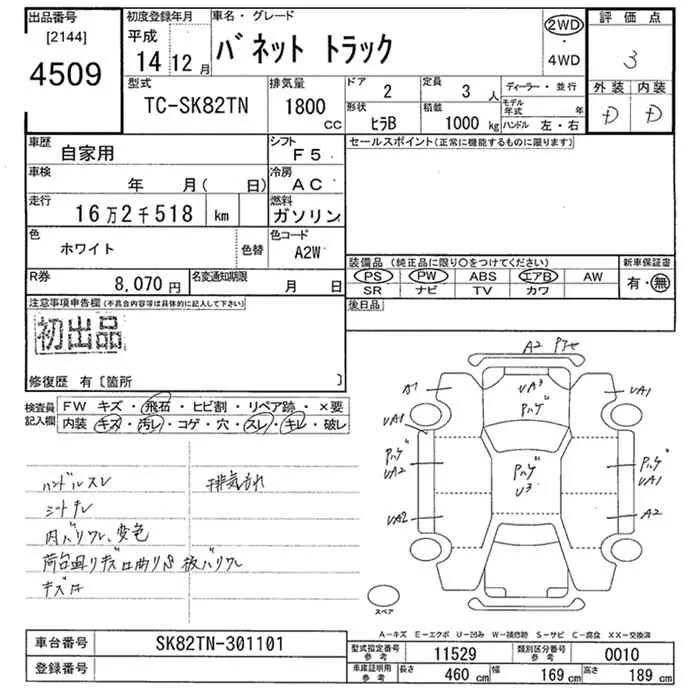 出品番号 初度登録年月 車名・グレード 評価点
[2144] 平成 2WD
4509 14 12月 バネット トラック ・ 3
4WD
型式 排気量 ドア 2 定員 3人 ディーラー・並行 外装 内装
TC-SK82TN 1800 CC 形状 ヒラB 積載 1000 kg モデル年式 年 D D
ハンドル 左・右
車歴 自家用 シフト F5 セールスポイント(正常に機能するものに限ります)
車検 年 月( 日) 冷房 AC
走行 16万2千518 km 燃料 ガソリン
色 ホワイト 色替 色コード A2W 装備品 (純正品に限り○をつけてください) 新車保証書
PS PW ABS エアB AW 有・無
R券 8,070円 名変通知期限 月 日 SR ナビ TV カワ
注意事項申告欄(不具合内容等は具体的に記入して下さい) 後日品
初出品
修復歴 有〔箇所 〕
A2
A1 UA3 UA1
検査員 FW キズ・飛石・ヒビ割・リペア跡・×要
記入欄 内装 キズ・汚レ・コゲ・穴・スレ・キレ・破レ
UA1 Pハゲ
Pハゲ Pハゲ Pハゲ
UA2 U3 UA1
ハンドルスレ 排気もれ
シートキレ UA2 A2
内バリワレ、変色
スペア
A-キズ E-エクボ U-凹み W-補修跡 S-サビ C-腐食 XX-交換済
車台番号 SK82TN-301101 型式指定番号 参考 11529 類別区分番号 参考 0010
登録番号 車庫証明用 参考 長さ 460 cm 幅 169 cm 高さ 189 cm